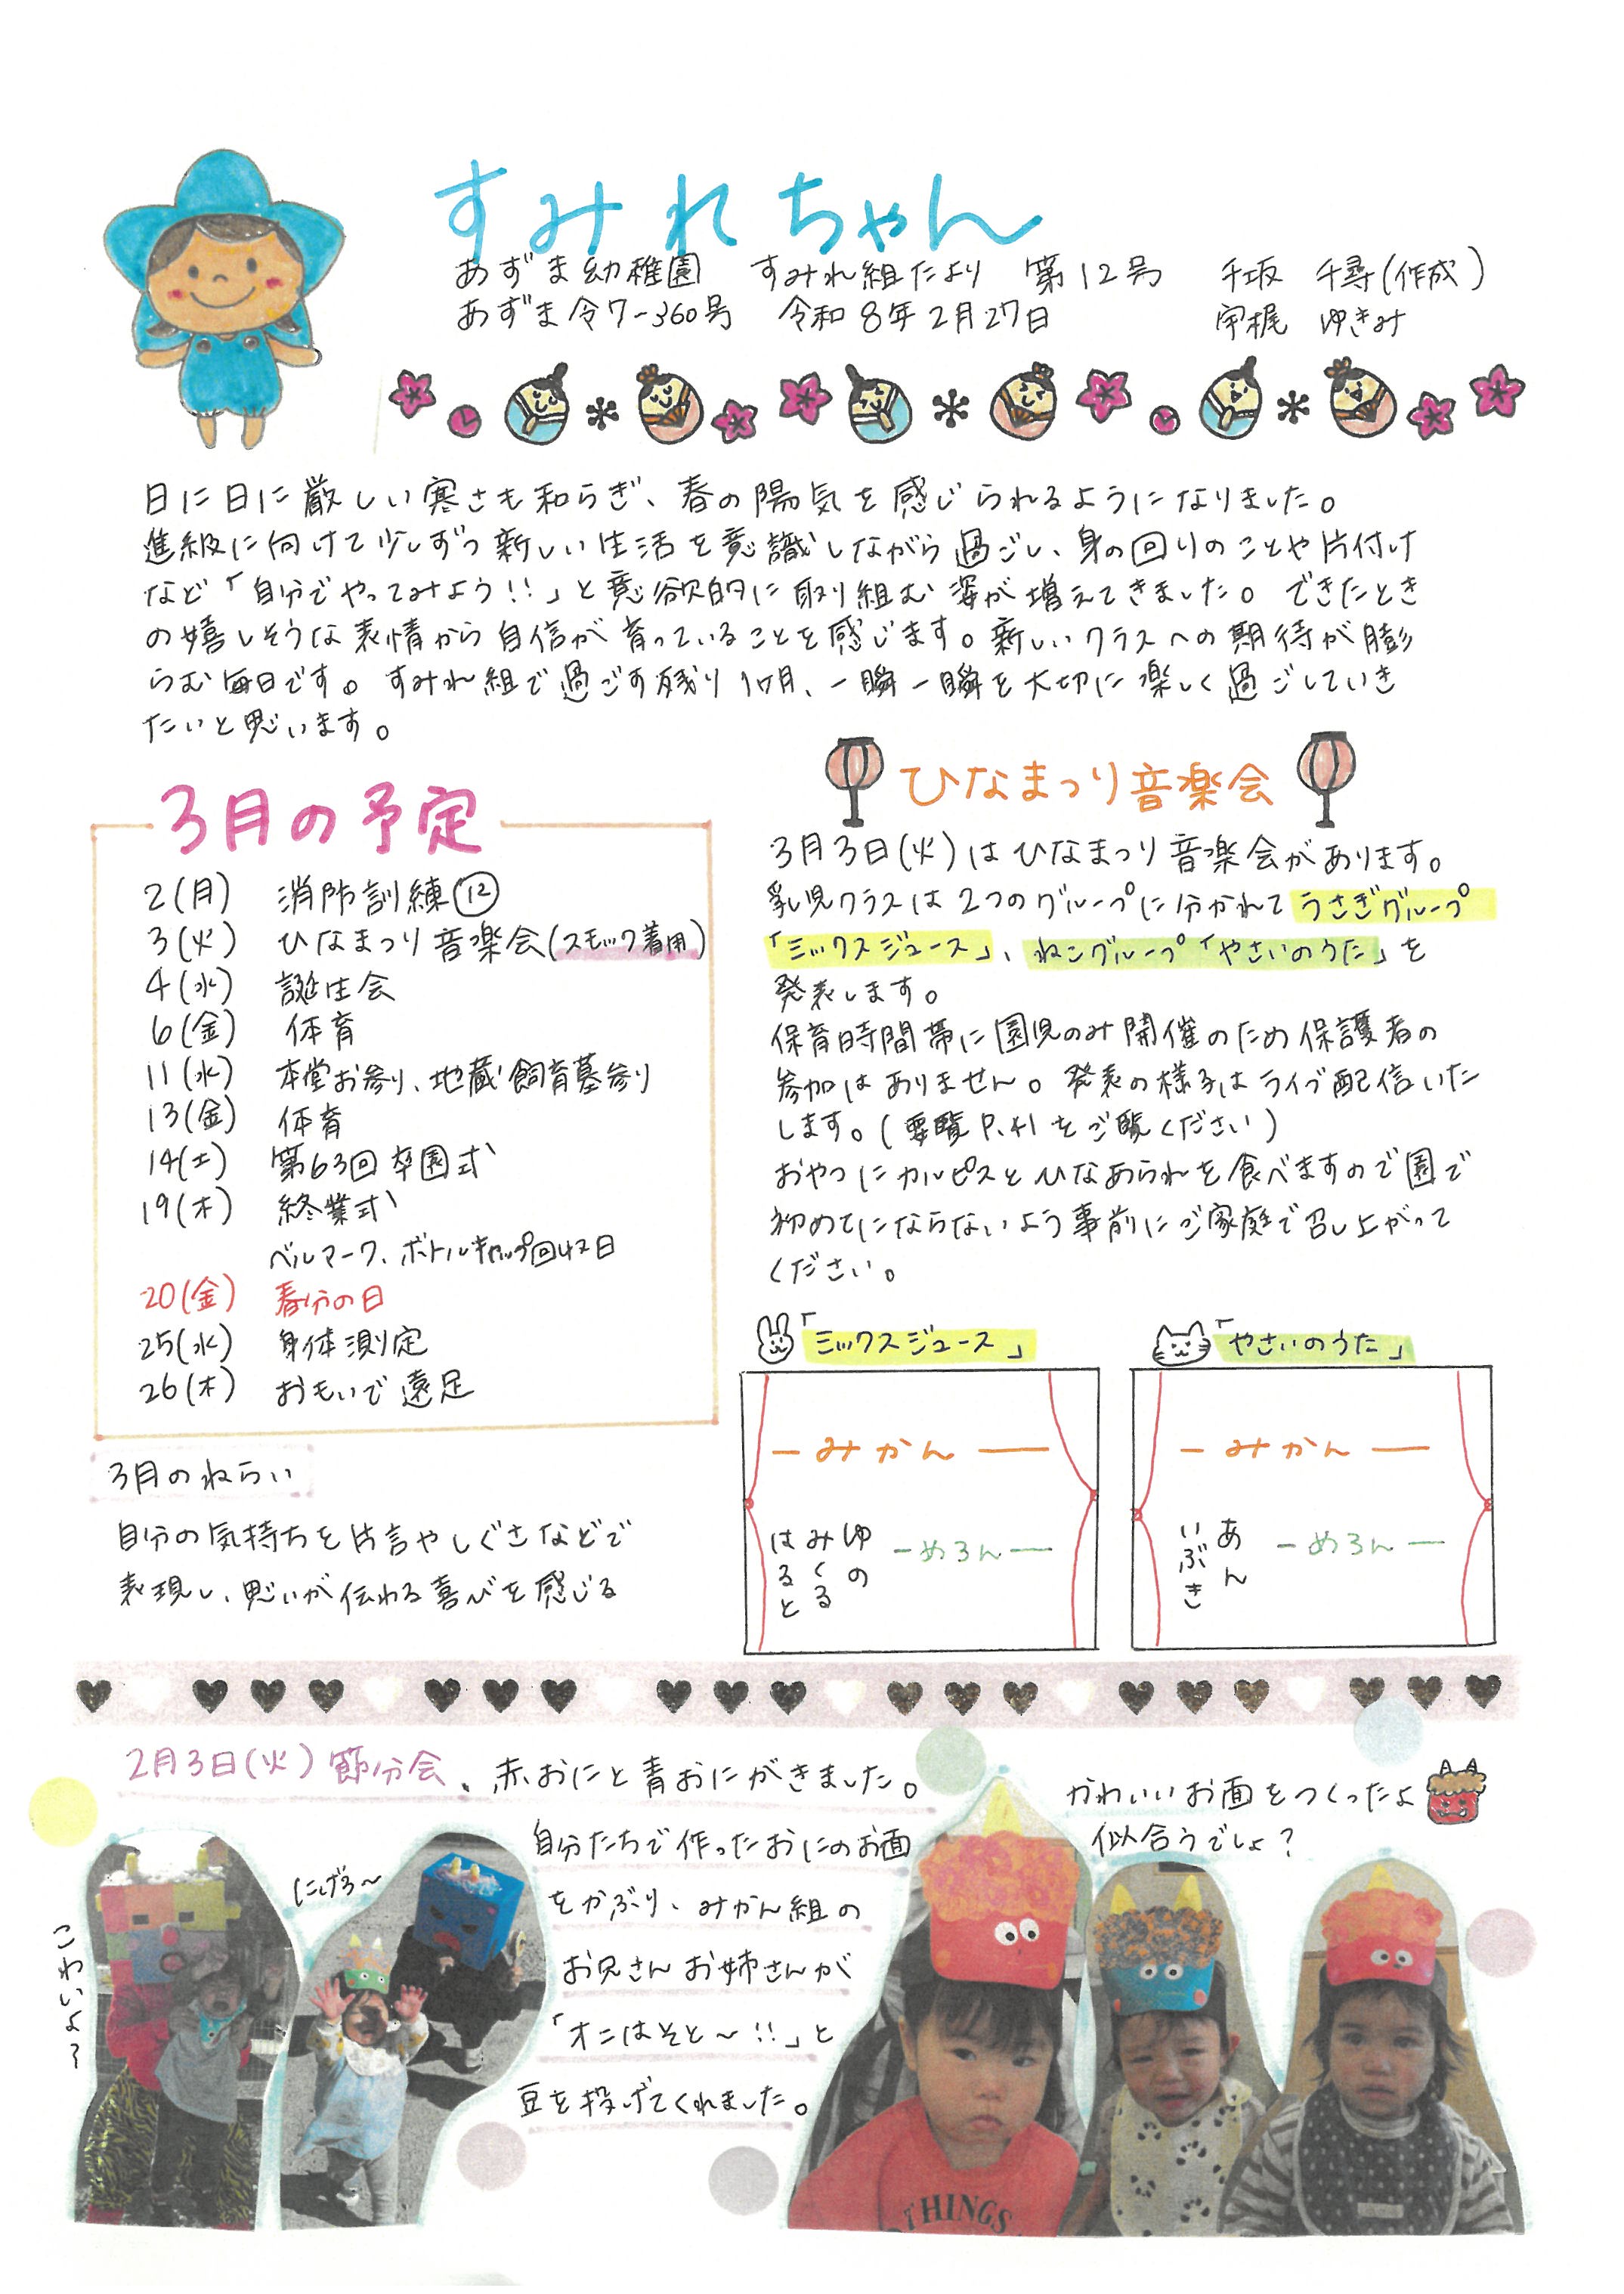 すみれちゃん
あずま幼稚園　すみれ組だより　第12号　千坂　千尋(作成)
あずま令7-360号　令和8年2月27日　宇梶　ゆきみ
日に日に厳しい寒さも和らぎ、春の陽気を感じられるようになりました。
進級に向けて少しずつ新しい生活を意識しながら過ごし、身の回りのことや片付け
など「自分でやってみよう!!」と意欲的に取り組む姿が増えてきました。できたとき
の嬉しそうな表情から自信が育っていることを感じます。新しいクラスへの期待が膨
らむ毎日です。すみれ組で過ごす残り1ヶ月、一瞬一瞬を大切に楽しく過ごしていき
たいと思います。
3月の予定
2(月)　消防訓練⑫
3(火)　ひなまつり音楽会(スモック着用)
4(水)　誕生会
6(金)　体育
11(水)　本堂お参り、地蔵飼育墓参り
13(金)　体育
14(土)　第63回卒園式
19(木)　終業式
ベルマーク、ボトルキャップ回収日
20(金)　春分の日
25(水)　身体測定
26(木)　おもいで遠足
3月のねらい
自分の気持ちを片言やしぐさなどで
表現し、思いが伝わる喜びを感じる
ひなまつり音楽会
3月3日(火)はひなまつり音楽会があります。
乳児クラスは2つのグループに分かれてうさぎグループ
「ミックスジュース」、ねこグループ「やさいのうた」を
発表します。
保育時間帯に園児のみ開催のため保護者の
参加はありません。発表の様子はライブ配信いた
します。(要覧P.41をご覧ください)
おやつにカルピスとひなあられを食べますので園で
初めてにならないよう事前にご家庭で召し上がって
ください。
「ミックスジュース」
ーみかんー
ゆの
みくる
はると
ーめろんー
「やさいのうた」
ーみかんー
あん
いぶき
ーめろんー
2月3日(火)節分会、赤おにと青おにがきました。
自分たちで作ったおにのお面
をかぶり、みかん組の
お兄さんお姉さんが
「オニはそと〜!!」と
豆を投げてくれました。
こわいよ〜
にげろ〜
かわいいお面をつくったよ
似合うでしょ？
THINGS